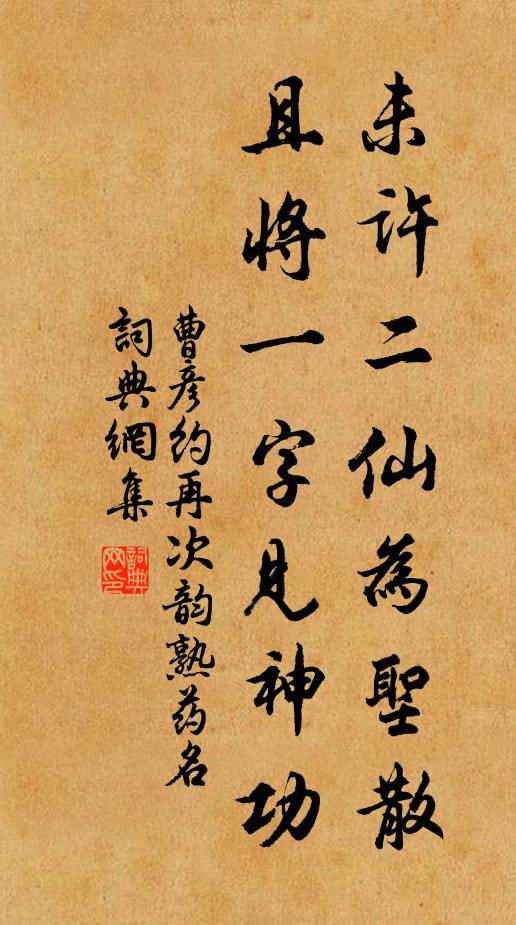 未許二仙為聖散
且將一字見神功
曹彥約再次韵熟药名
詞典網集
詞典网印